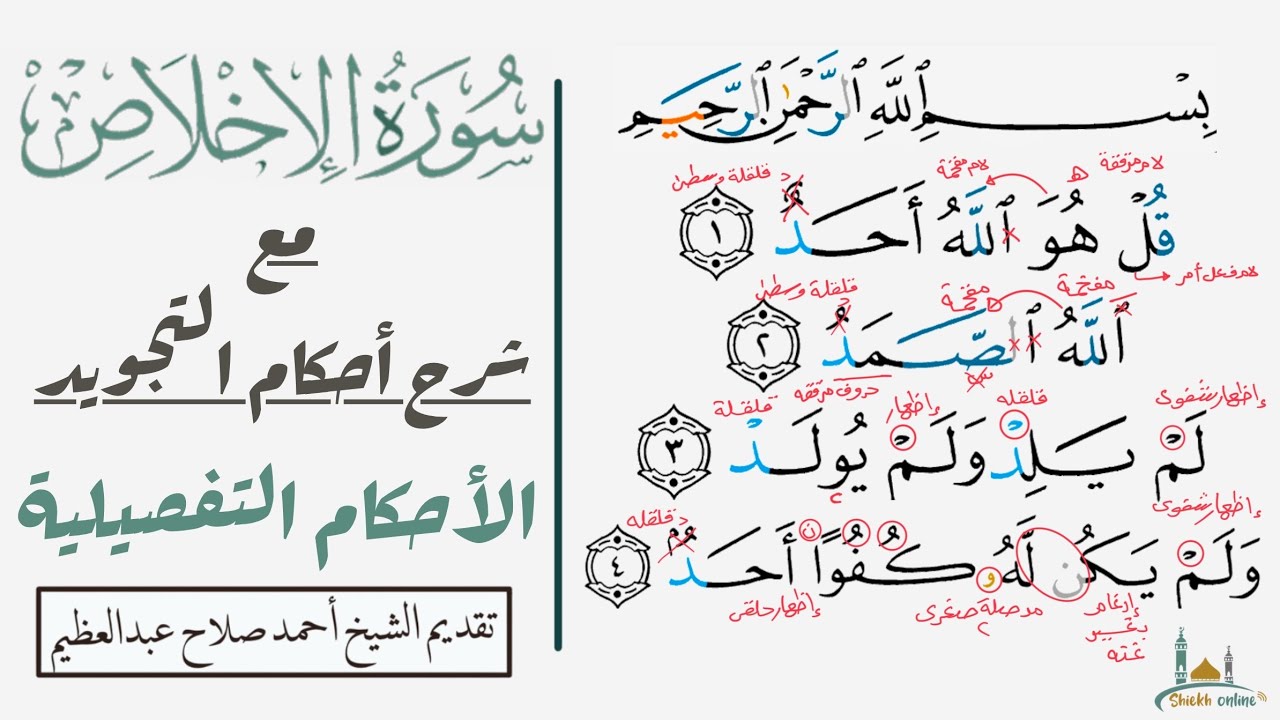 سُورَةُ الإِخْلَاصِ
مع
شرح أحكام التجويد
الأحكام التفصيلية
تقديم الشيخ أحمد صلاح عبدالعظيم
بِسْمِ ٱللَّهِ ٱلرَّحْمَٰنِ ٱلرَّحِيمِ
لام مرققة ه لام مفخمة د قلقلة وسطى
قُلْ هُوَ ٱللَّهُ أَحَدٌ ١
لام فعل أمر
مفخمة مفخمة د قلقلة وسطى
ٱللَّهُ ٱلصَّمَدُ ٢
إظهار شفوى قلقله إظهار حروف مرققه قلقلة
لَمْ يَلِدْ وَلَمْ يُولَدْ ٣
٢
إظهار شفوى د قلقله
وَلَمْ يَكُن لَّهُۥ كُفُوًا أَحَدٌ ٤
إدغام بغير غنه مد صلة صغرى ٢ إظهار حلقى
Shiekh online